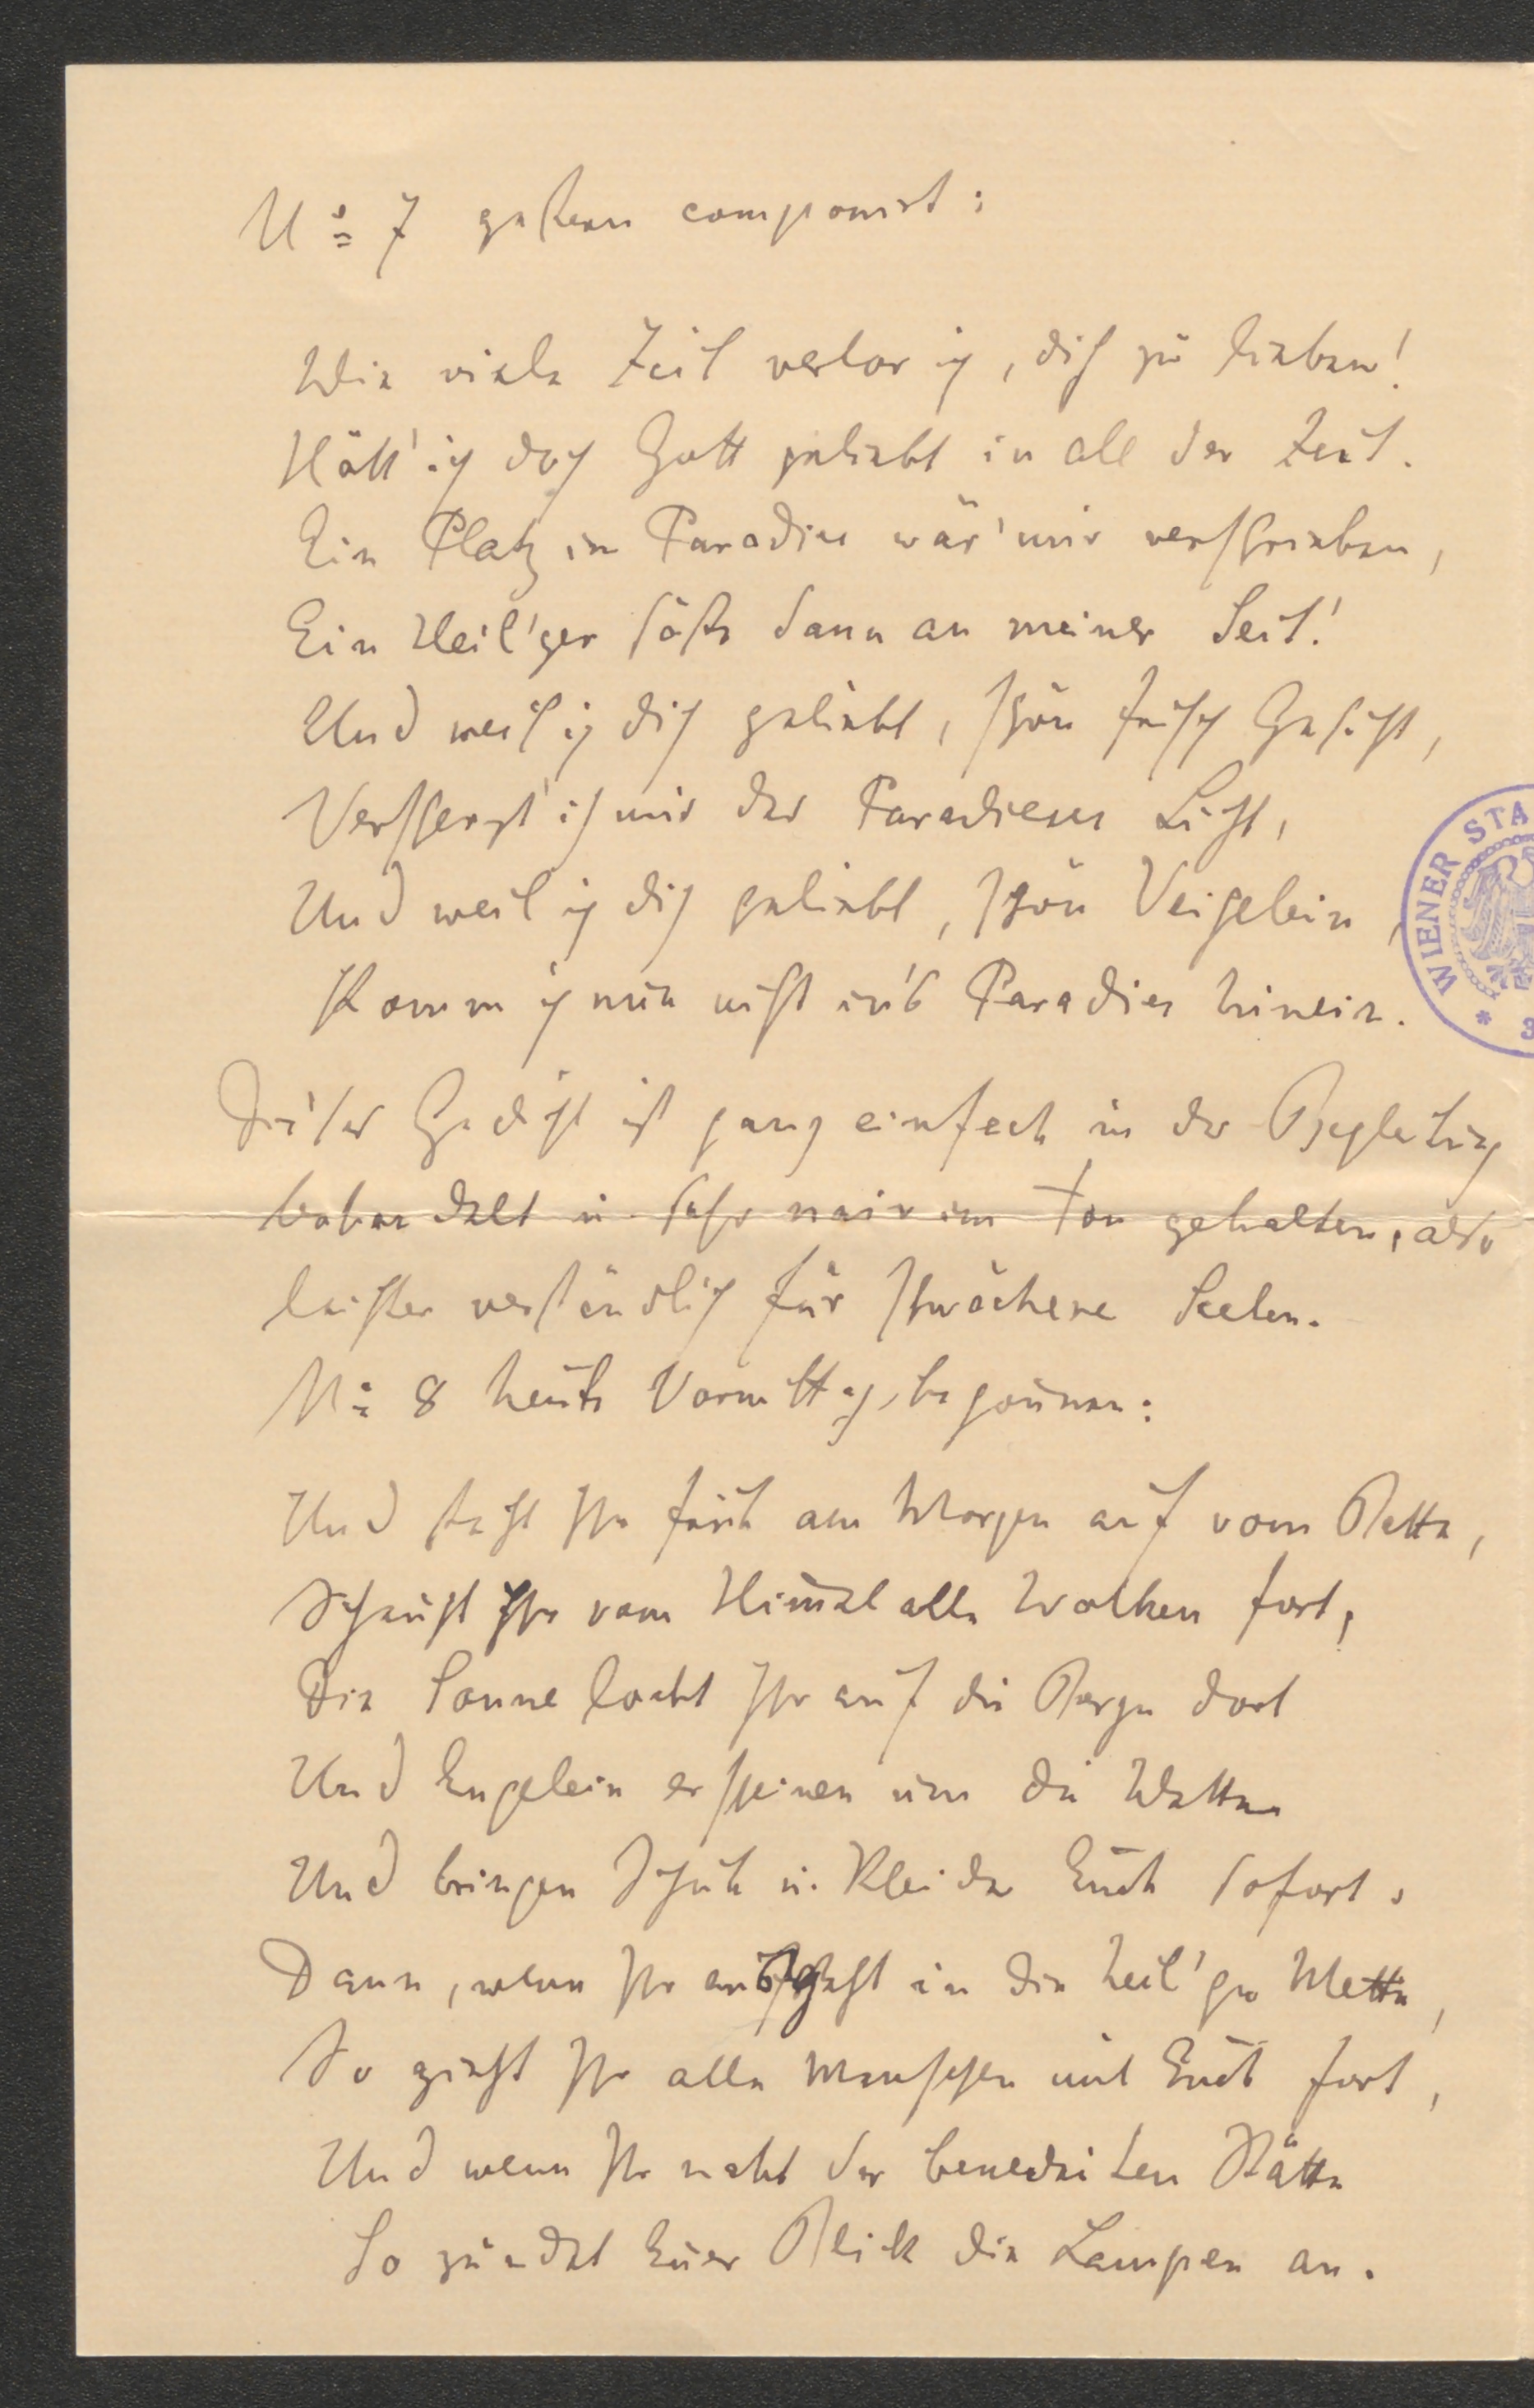 No 7 gestern componirt:
Wie viele Zeit verlor ich, dich zu lieben!
Hätt' ich doch Gott geliebt in all der Zeit.
Ein Platz im Paradies wär' mir verschrieben,
Ein Heil'ger säße dann an meiner Seit'!
Und weil ich dich geliebt, schön frisch Gesicht,
Verscherzt' ich mir des Paradieses Licht,
Und weil ich dich geliebt, schön Veigelein,
Komm ich nun nicht in's Paradies hinein.
Dieses Gedicht ist ganz einfach in der Begleitung
behandelt u. sehr naiv im Ton gehalten, also
leichter verständlich für schwächere Seelen.
No 8 heute Vormittag begonnen:
Und steht Ihr früh am Morgen auf vom Bette,
Scheucht Ihr vom Himmel alle Wolken fort,
Die Sonne lockt Ihr auf die Berge dort
Und Engelein erscheinen um die Wette
Und bringen Schuh u. Kleider Euch sofort.
Dann, wenn Ihr ausgeht in die heil'ge Mette,
So zieht Ihr alle Menschen mit Euch fort,
Und wenn Ihr naht der benedeiten Stätte
So zündet Euer Blick die Lampen an.
WIENER STA